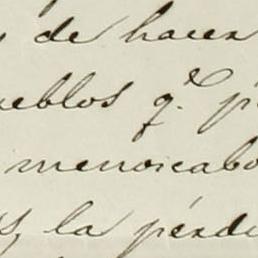 de hacer
ueblos q.e p
menoscabo
s, la pérdi